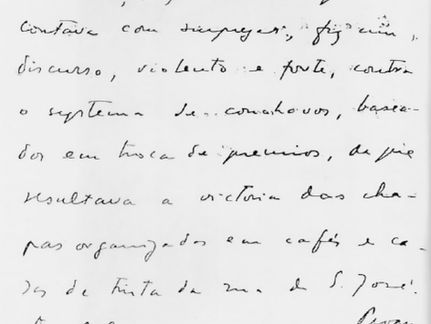 contava com
discurso, violento e forte, contra
o systema de conchavos, basea-
dos em troca de premios, de que
resultava a victoria das cha-
pas organizadas em cafés e ca-
sas de tinta da rua de S. José.